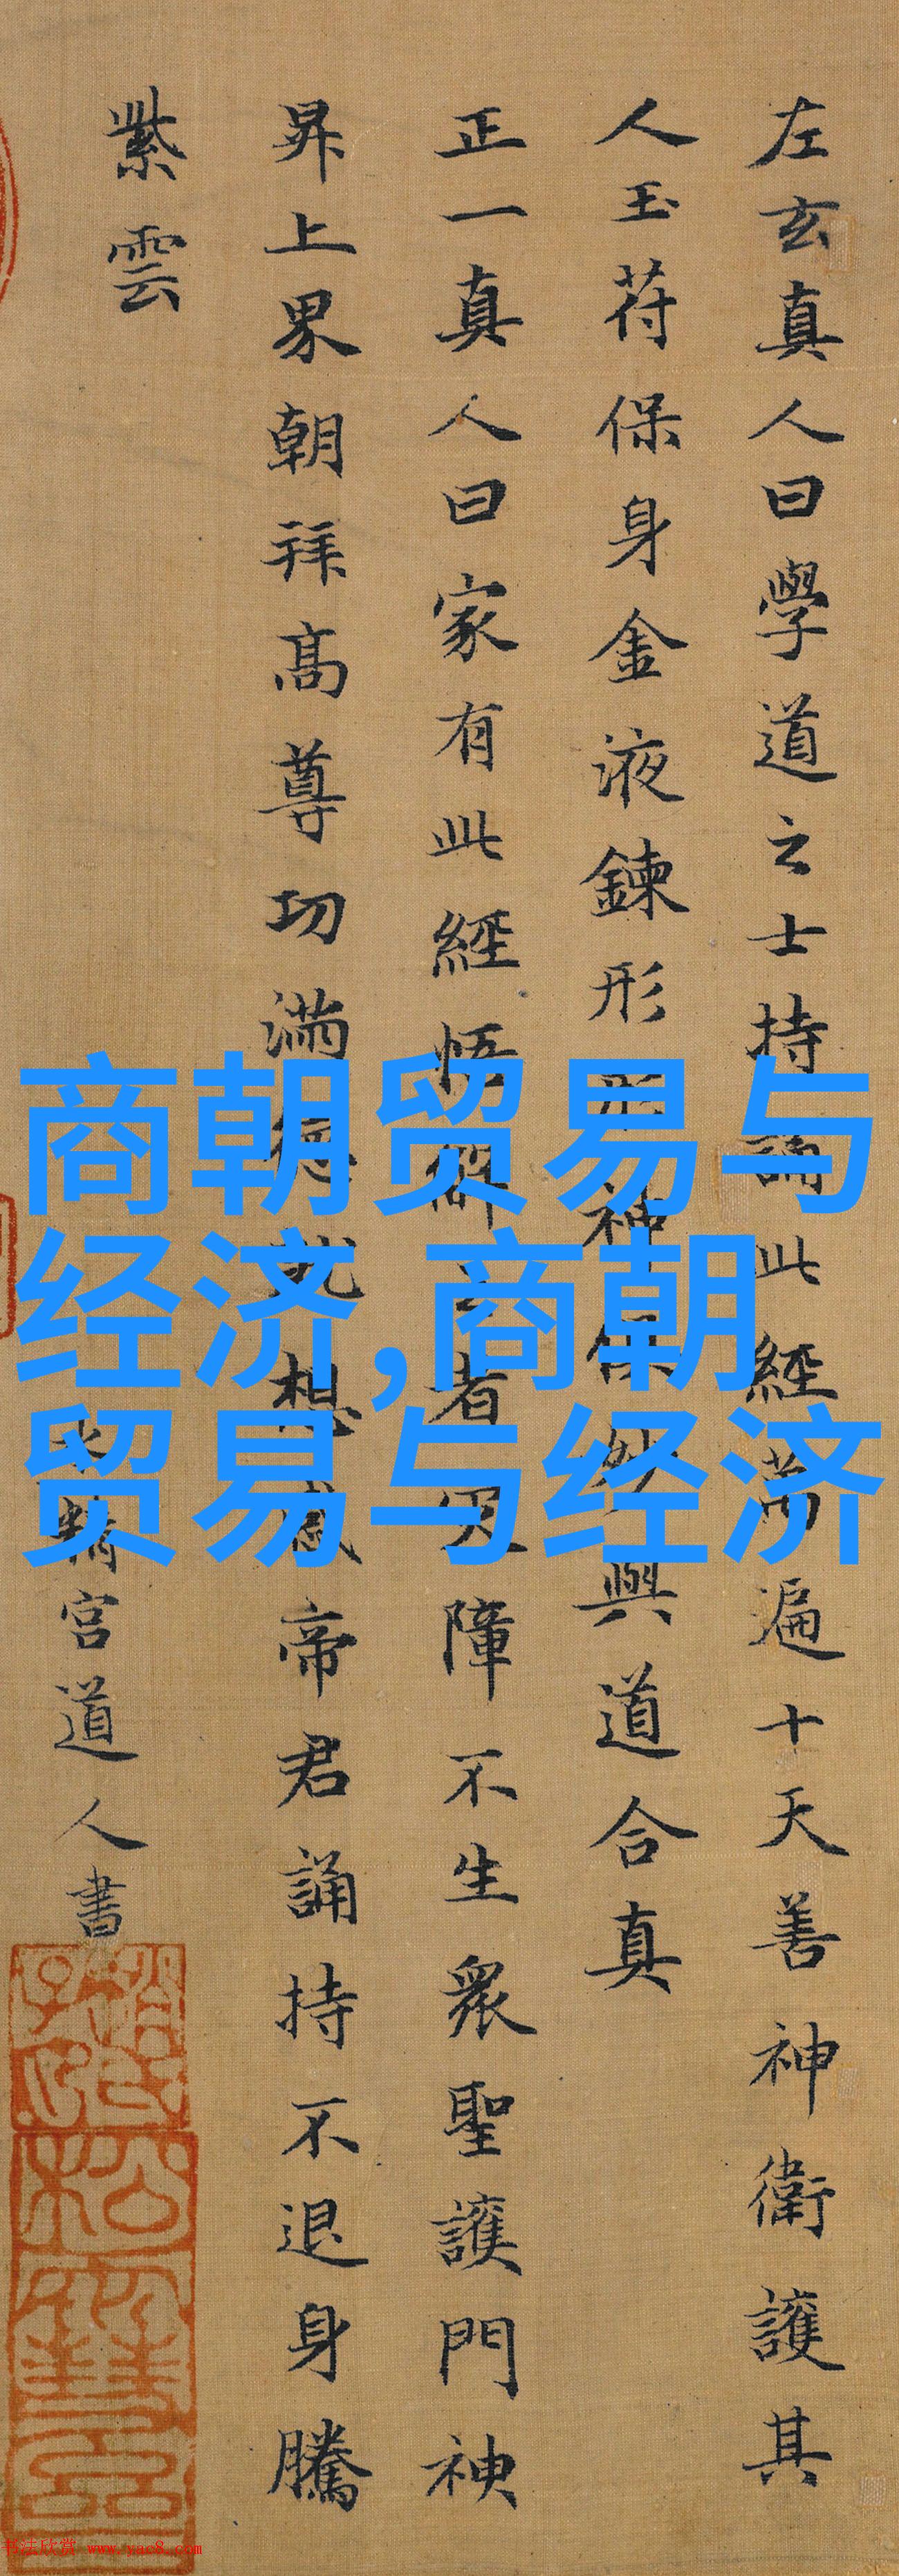 左玄真人曰學道之士持誦此經萬遍十天善神衛護其
人玉符保身金液鍊形形神保妙與道合真
正一真人曰家有此經悟解之者災障不生衆聖護門神
昇上界朝拜高尊功滿德就想感帝君誦持不退身騰
紫雲
水精宮道人書
商朝贸易与
经济,商朝
贸易与经济
书法欣赏 www.yac8.com